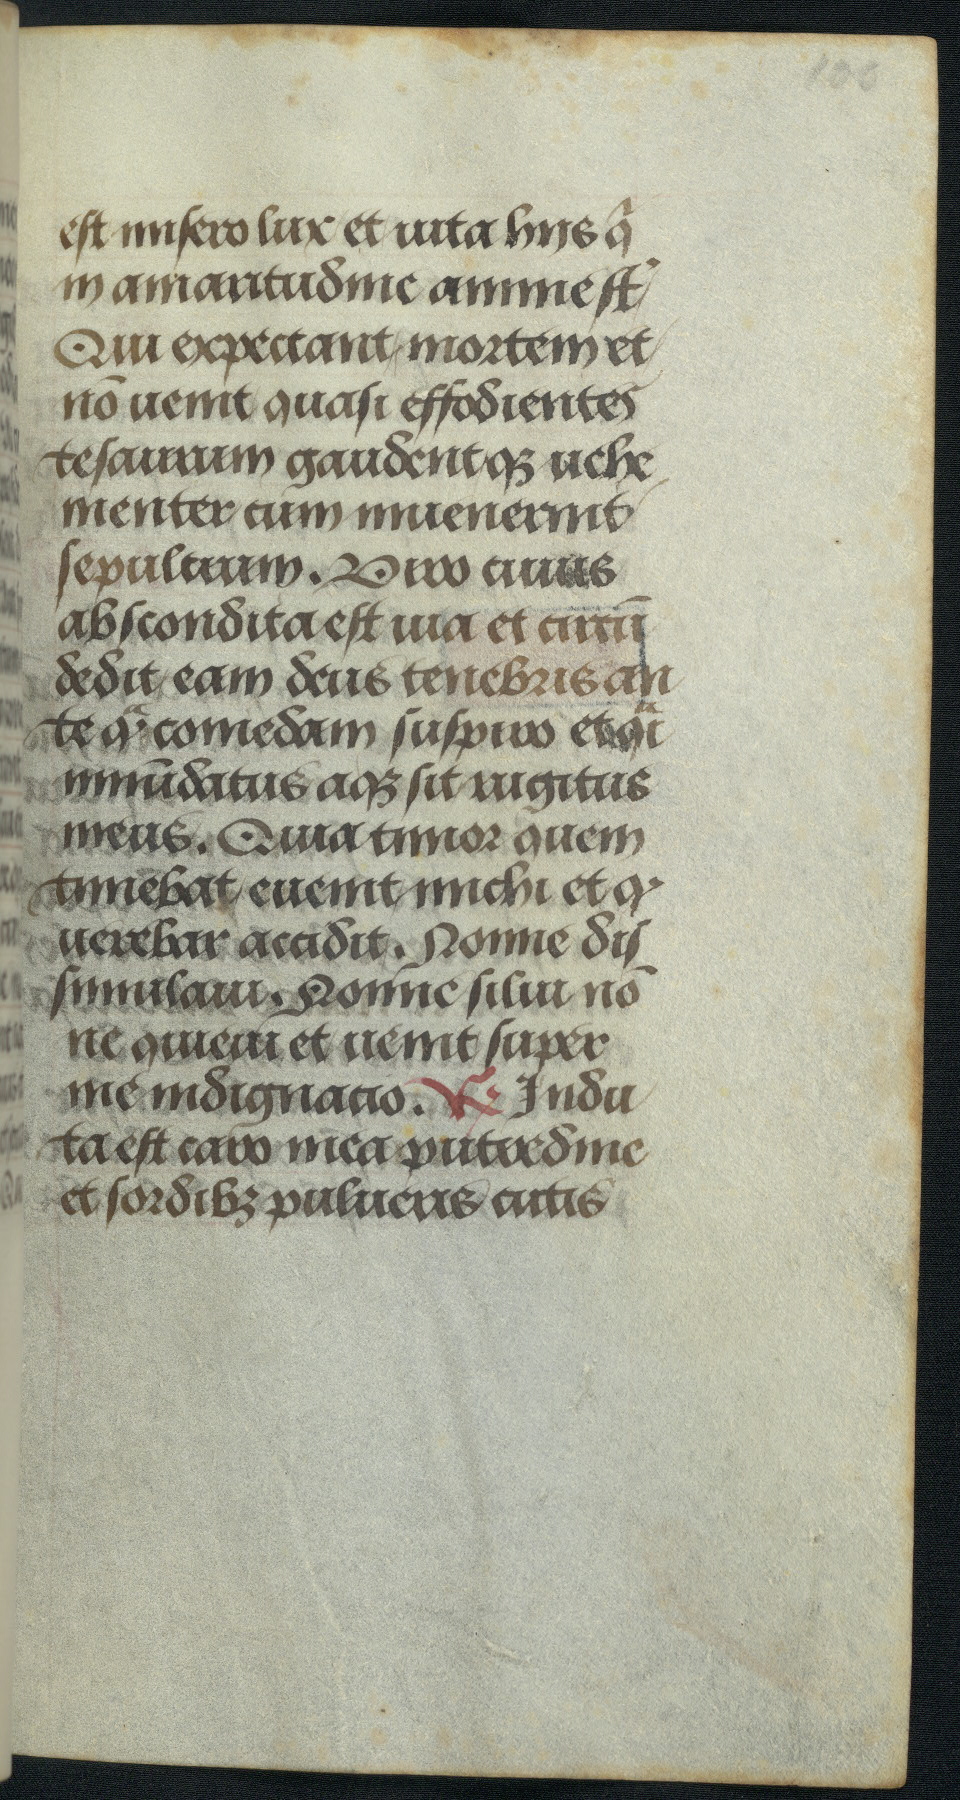 100
est misero lux et uita hijs qͥ
in amaritudine anime sūt
Qui expectant mortem et
nō uenit quasi effodientes
tesaurum gaudentqꝫ uehe
menter cum inuenerint
sepulcrum. Viro cuius
abscondita est uia et circū
dedit eam deus tenebris an
te qᷓ comedam suspiro et qͣi
inūdatus aqꝫ sit rugitus
meus. Quia timor quem
timebat euenit michi et qͦ
uerebar accidit. Nonne dis
simulaui. Nonne silui nō
ne quieui et uenit super
me indignatio. ℟ Indu
ta est caro mea putredine
et sordibꝫ pulueris cutis